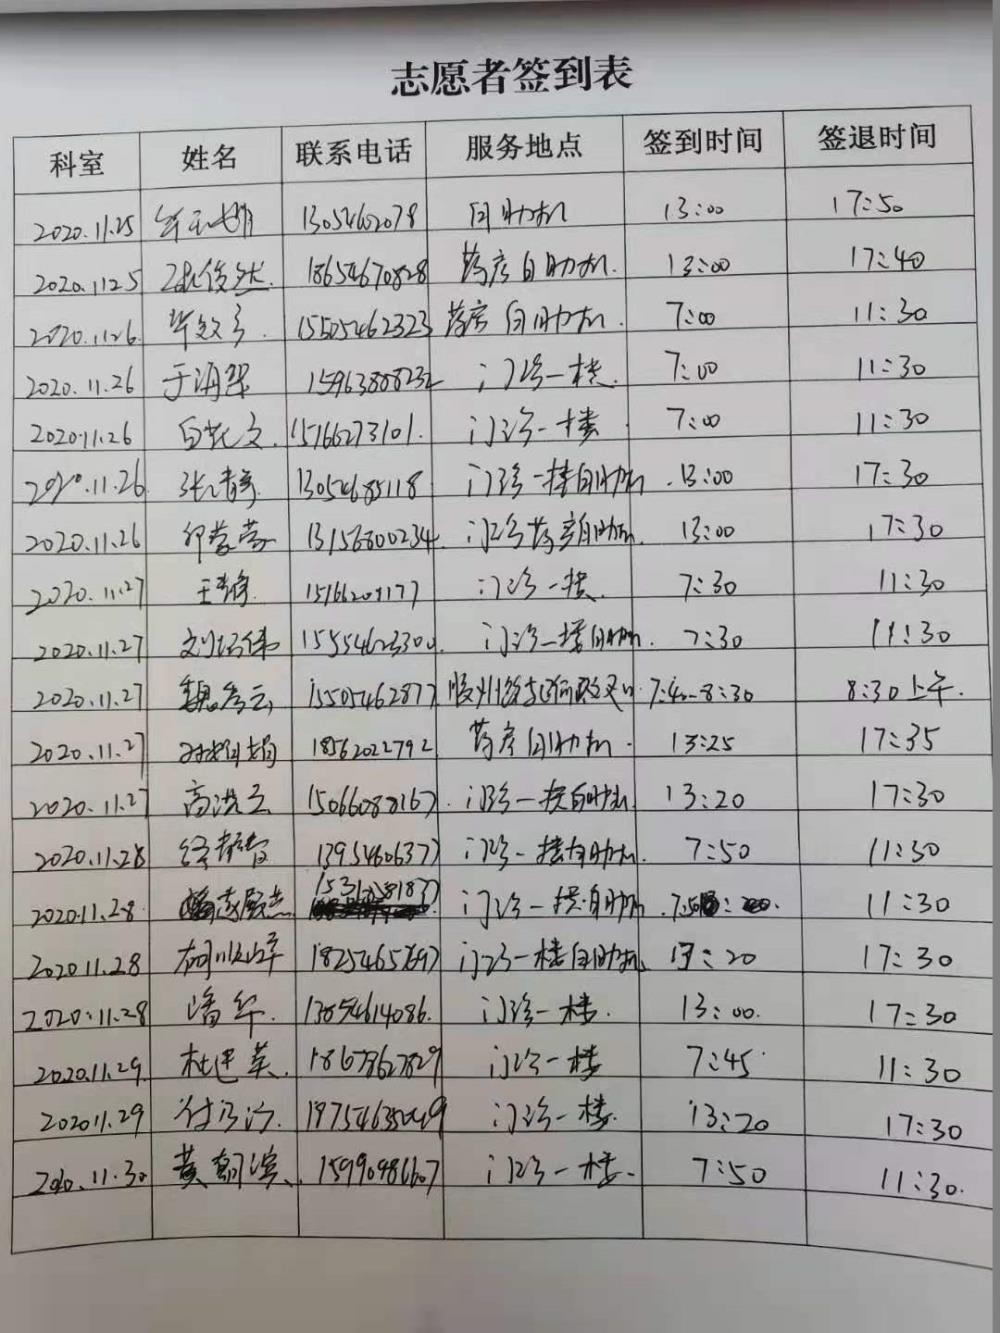 志愿者签到表
科室 姓名 联系电话 服务地点 签到时间 签退时间
2020.11.25 自助机 13:00 17:50
2020.1125 18654670828 药房自助机. 13:00 17:40
2020.1126 15505462323 药房自助机. 7:00 11:30
2020.11.26 于海翠 15963808232 门诊一楼. 7:00 11:30
2020.11.26 15166273101. 门诊一楼 7:00 11:30
2020.11.26 张静 13054685118 门诊一楼自助机 13:00 17:30
2020.11.26 13156800234 门诊药房自助机. 13:00 17:30
2020.11.27 门诊一楼. 7:30 11:30
2020.11.27 门诊一楼自助机. 7:30 11:30
2020.11.27 15505462877 7:40-8:30 8:30上午.
2020.11.27 18562022792 药房自助机. 13:25 17:35
2020.11.27 高洪云 15066088167. 门诊一楼自助机 13:20 17:30
2020.11.28 13954606377 门诊一楼自助机. 7:50 11:30
2020.11.28 门诊一楼自助机 11:30
2020.11.28 门诊一楼自助机 13:20 17:30
2020.11.28 潘华. 13854614086. 门诊一楼. 13:00. 17:30
2020.11.29. 杜建英. 18678627829 门诊一楼 7:45 11:30
202011.29 门诊一楼. 13:20 17:30
2020.11.30 黄朝滨. 15990986607 门诊一楼. 7:50 11:30.